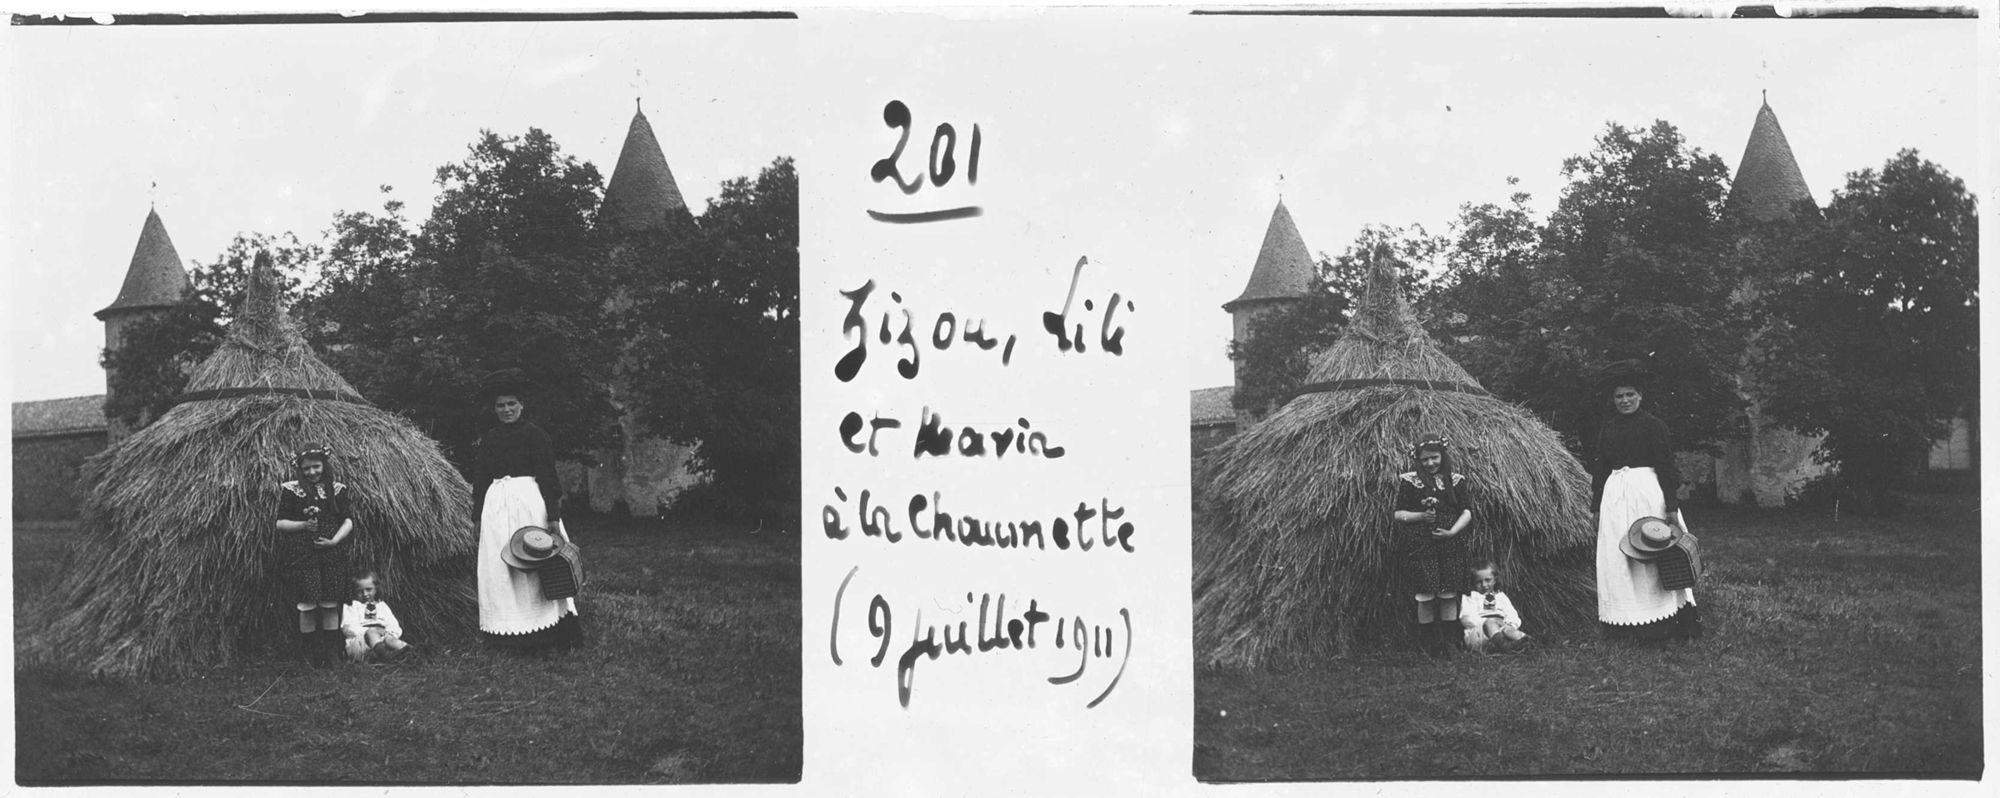 201
Zizou, Lili
et Maria
à la Chaumette
(9 juillet 1911)